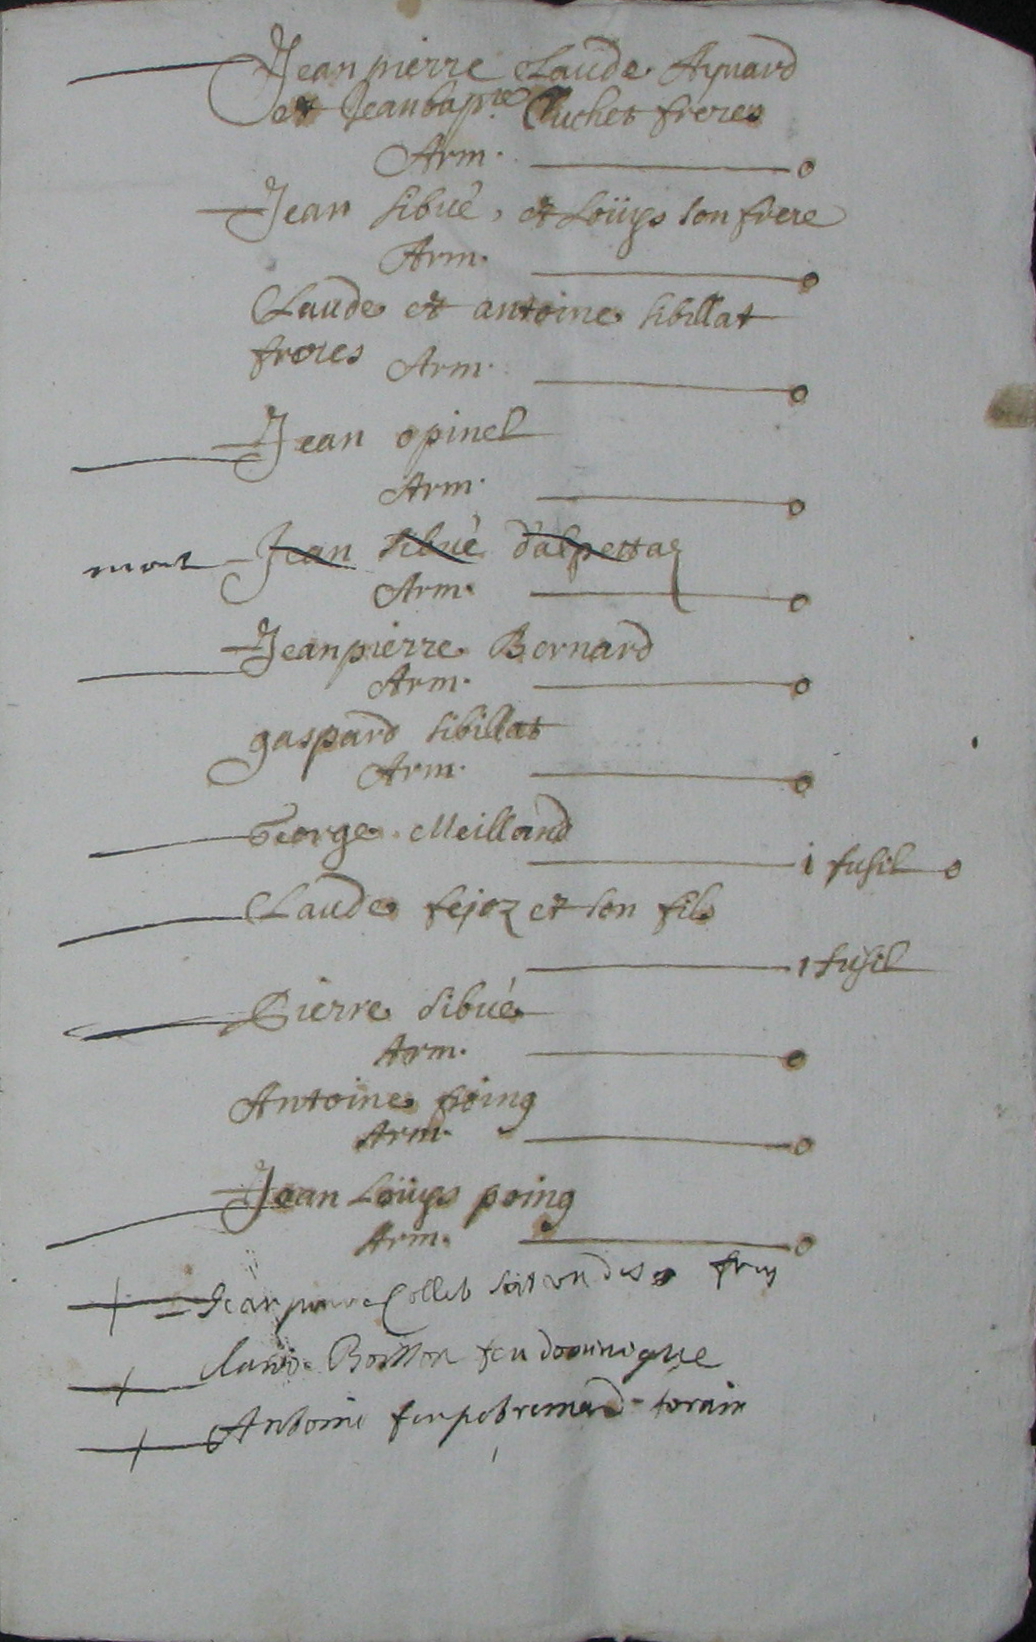 Jean pierre Claude Aynard
et Jean bap.te Cuchet freres
Arm. o
Jean sibué, et Loüys son frere
Arm. o
Claude et antoine sibillat
freres Arm. o
Jean opinel
Arm. o
mort Jean sibué d'alpettaz
Arm. o
Jeanpierre Bernard
Arm. o
gaspard sibillat
Arm. o
George Meilland
1 fusil o
Claude fejoz et son fils
1 fusil
Pierre sibué
Arm. o
Antoine poing
Arm. o
Jean Loüys poing
Arm. o
Jean pierre Collet
feu dominique
Antoine feu